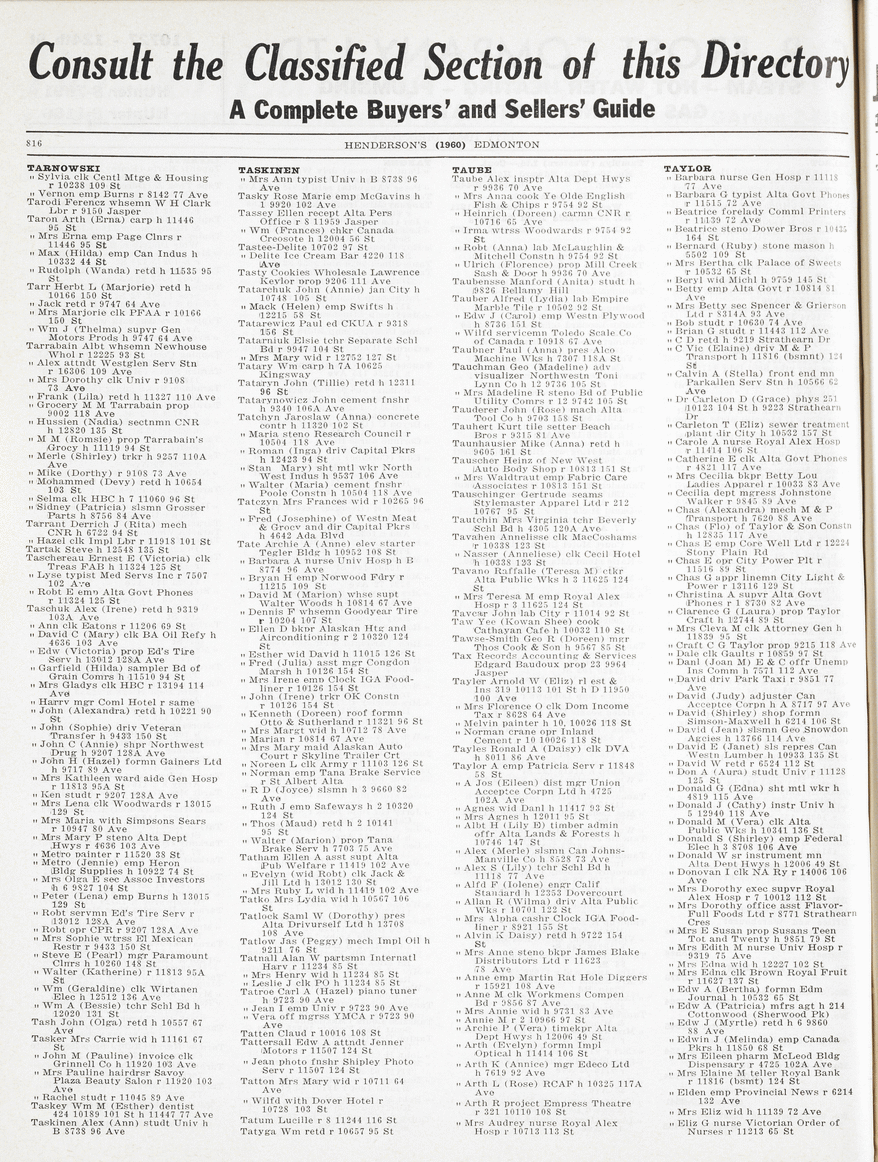 Consult the Classified Section of this Directory
A Complete Buyers' and Sellers' Guide
816
HENDERSON'S (1960) EDMONTON
TARNOWSKI
" Sylvia clk Centl Mtge & Housing
r 10238 109 St
" Vernon emp Burns r 8142 77 Ave
Tarodi Ferencz whsemn W H Clark
Lbr r 9150 Jasper
Taron Arth (Erna) carp h 11446
95 St
" Mrs Erna emp Page Clnrs r
11446 95 St
" Max (Hilda) emp Can Indus h
10332 44 St
" Rudolph (Wanda) retd h 11535 95
St
Tarr Herbt L (Marjorie) retd h
10166 150 St
" Jack retd r 9747 64 Ave
" Mrs Marjorie clk PFAA r 10166
150 St
" Wm J (Thelma) supvr Gen
Motors Prods h 9747 64 Ave
Tarrabain Albt whsemn Newhouse
Whol r 12225 93 St
" Alex attndt Westglen Serv Stn
r 16306 109 Ave
" Mrs Dorothy clk Univ r 9108
73 Ave
" Frank (Lila) retd h 11327 110 Ave
" Grocery M M Tarrabain prop
9002 118 Ave
" Hussien (Nadia) sectnmn CNR
h 12820 135 St
" M M (Romsie) prop Tarrabain's
Grocy h 11119 94 St
" Merle (Shirley) trkr h 9257 110A
Ave
" Mike (Dorthy) r 9108 73 Ave
" Mohammed (Devy) retd h 10654
103 St
" Selma clk HBC h 7 11060 96 St
" Sidney (Patricia) slsmn Grosser
Parts h 8756 84 Ave
Tarrant Derrich J (Rita) mech
CNR h 6722 94 St
" Hazel clk Impl Lbr r 11918 101 St
Tartak Steve h 12548 135 St
Taschereau Ernest E (Victoria) clk
Treas FAB h 11324 125 St
" Lyse typist Med Servs Inc r 7507
102 Ave
" Robt E emp Alta Govt Phones
r 11324 125 St
Taschuk Alex (Irene) retd h 9319
103A Ave
" Ann clk Eatons r 11206 69 St
" David C (Mary) clk BA Oil Refy h
4636 103 Ave
" Edw (Victoria) prop Ed's Tire
Serv h 13012 128A Ave
" Garfield (Hilda) sampler Bd of
Grain Comrs h 11510 94 St
" Mrs Gladys clk HBC r 13194 114
Ave
" Harry mgr Coml Hotel r same
" John (Alexandra) retd h 10221 90
St
" John (Sophie) driv Veteran
Transfer h 9433 150 St
" John C (Annie) shpr Northwest
Drug h 9207 128A Ave
" John H (Hazel) formn Gainers Ltd
h 9717 89 Ave
" Mrs Kathleen ward aide Gen Hosp
r 11813 95A St
" Ken studt r 9207 128A Ave
" Mrs Lena clk Woodwards r 13015
129 St
" Mrs Maria with Simpsons Sears
r 10947 80 Ave
" Mrs Mary P steno Alta Dept
Hwys r 4636 103 Ave
" Metro painter r 11520 38 St
" Metro (Jennie) emp Heron
Bldg Supplies h 10922 74 St
" Mrs Olga E sec Assoc Investors
h 6 9827 104 St
" Peter (Lena) emp Burns h 13015
129 St
" Robt servmn Ed's Tire Serv r
13012 128A Ave
" Robt opr CPR r 9207 128A Ave
" Mrs Sophie wtrss El Mexican
Restr r 9433 150 St
" Steve E (Pearl) mgr Paramount
Clnrs h 10260 148 St
" Walter (Katherine) r 11813 95A
St
" Wm (Geraldine) clk Wirtanen
Elec h 12512 136 Ave
" Wm A (Bessie) tchr Schl Bd h
12020 131 St
Tash John (Olga) retd h 10557 67
Ave
Tasker Mrs Carrie wid h 11161 67
St
" John M (Pauline) invoice clk
Grinnell Co h 11920 103 Ave
" Mrs Pauline hairdrsr Savoy
Plaza Beauty Salon r 11920 103
Ave
" Rachel studt r 11045 89 Ave
Taskey Wm M (Esther) dentist
424 10189 101 St h 11447 77 Ave
Taskinen Alex (Ann) studt Univ h
B 8738 96 Ave
TASKINEN
" Mrs Ann typist Univ h B 8738 96
Ave
Tasky Rose Marie emp McGavins h
1 9920 102 Ave
Tassey Ellen recept Alta Pers
Office r 8 11959 Jasper
" Wm (Frances) chkr Canada
Creosote h 12004 56 St
Tastee-Delite 10702 97 St
" Delite Ice Cream Bar 4220 118
Ave
Tasty Cookies Wholesale Lawrence
Keylor prop 9206 111 Ave
Tatarchuk John (Annie) jan City h
10748 105 St
" Mack (Helen) emp Swifts h
12215 58 St
Tatarewicz Paul ed CKUA r 9318
156 St
Tatarniuk Elsie tchr Separate Schl
Bd r 9947 104 St
" Mrs Mary wid r 12752 127 St
Tatary Wm carp h 7A 10625
Kingsway
Tataryn John (Tillie) retd h 12311
96 St
Tatarynowicz John cement fnshr
h 9340 106A Ave
Tatchyn Jaroslaw (Anna) concrete
contr h 11320 102 St
" Maria steno Research Council r
10504 118 Ave
" Roman (Inga) driv Capital Pkrs
h 12423 94 St
" Stan Mary) sht mtl wkr North
West Indus h 9537 106 Ave
" Walter (Maria) cement fnshr
Poole Constn h 10504 118 Ave
Tatczyn Mrs Frances wid r 10265 96
St
" Fred (Josephine) of Westn Meat
& Grocy and dir Capital Pkrs
h 4642 Ada Blvd
Tate Archie A (Anne) elev starter
Tegler Bldg h 10952 108 St
" Barbara A nurse Univ Hosp h B
8774 96 Ave
" Bryan H emp Norwood Fdry r
11215 109 St
" David M (Marion) whse supt
Walter Woods h 10814 67 Ave
" Dennis F whsemn Goodyear Tire
r 10204 107 St
" Ellen D bkpr Alaskan Htg and
Airconditioning r 2 10320 124
St
" Esther wid David h 11015 126 St
" Fred (Julia) asst mgr Congdon
Marsh h 10126 154 St
" Mrs Irene emn Clock IGA Food-
liner r 10126 154 St
" John (Irene) trkr OK Constn
r 10126 154 St
" Kenneth (Doreen) roof formn
Otto & Sutherland r 11321 96 St
" Mrs Margt wid h 10712 78 Ave
" Marian r 10814 67 Ave
" Mrs Mary maid Alaskan Auto
Court r Skyline Trailer Crt
" Noreen L clk Army r 11103 126 St
" Norman emp Tana Brake Service
r St Albert Alta
" R D (Joyce) slsmn h 3 9660 82
Ave
" Ruth J emp Safeways h 2 10320
124 St
" Thos (Maud) retd h 2 10141
95 St
" Walter (Marion) prop Tana
Brake Serv h 7703 75 Ave
Tatham Ellen A asst supt Alta
Pub Welfare r 11419 102 Ave
" Evelyn (wid Robt) clk Jack &
Jill Ltd h 13012 130 St
" Ruby L wid h 11419 102 Ave
Tatko Mrs Lydia wid h 10567 106
St
Tatlock Saml W (Dorothy) pres
Alta Drivurself Ltd h 13708
108 Ave
Tatlow Jas (Peggy) mech Impl Oil h
9211 76 St
Tatnall Alan W partsmn Internatl
Harv r 11234 85 St
" Mrs Henry wid h 11234 85 St
" Leslie J clk PO h 11234 85 St
Tatroe Carl A (Hazel) piano tuner
h 9723 90 Ave
" Jean I emp Univ r 9723 90 Ave
" Vera off mgrss YMCA r 9723 90
Ave
Tatten Claud r 10016 108 St
Tattersall Edw A attndt Jenner
Motors r 11507 124 St
" Jean photo fnshr Shipley Photo
Serv r 11507 124 St
Tatton Mrs Mary wid r 10711 64
Ave
" Wilfd with Dover Hotel r
10728 103 St
Tatum Lucille r 8 11244 116 St
Tatyga Wm retd r 10657 95 St
TAUBE
Taube Alex insptr Alta Dept Hwys
r 9936 70 Ave
" Mrs Anna cook Ye Olde English
Fish & Chips r 9754 92 St
" Heinrich (Doreen) carmn CNR r
10716 65 Ave
" Irma wtrss Woodwards r 9754 92
St
" Robt (Anna) lab McLaughlin &
Mitchell Constn h 9754 92 St
" Ulrich (Florence) prop Mill Creek
Sash & Door h 9936 70 Ave
Taubensse Manford (Anita) studt h
9826 Bellamy Hill
Tauber Alfred (Lydia) lab Empire
Marble Tile r 10502 92 St
" Edw J (Carol) emp Westn Plywood
h 8736 151 St
" Wilfd servicemn Toledo Scale Co
of Canada r 10918 67 Ave
Taubner Paul (Anna) pres Alco
Machine Wks h 7307 118A St
Tauchman Geo (Madeline) adv
visualizer Northwestn Toni
Lynn Co h 12 9736 105 St
" Mrs Madeline R steno Bd of Public
Utility Comrs r 12 9742 105 St
Tauderer John (Rose) mach Alta
Tool Co h 9703 158 St
Tauhert Kurt tile setter Beach
Bros r 9315 81 Ave
Taunhausier Mike (Anna) retd h
9605 161 St
Tauscher Heinz of New West
Auto Body Shop r 10813 151 St
" Mrs Waldtraut emp Fabric Care
Associates r 10813 151 St
Tauschinger Gertrude seams
Stylemaster Apparel Ltd r 212
10767 95 St
Tautchin Mrs Virginia tchr Beverly
Schl Bd h 4305 120A Ave
Tavahen Annelisse clk MacCoshams
r 10338 123 St
" Nasser (Anneliese) clk Cecil Hotel
h 10338 123 St
Tavano Raffalle (Teresa M) ctkr
Alta Public Wks h 3 11625 124
St
" Mrs Teresa M emp Royal Alex
Hosp r 3 11625 124 St
Tavcar John lab City r 11014 92 St
Taw Yee (Kowan Shee) cook
Cathayan Cafe h 10032 110 St
Tawse-Smith Geo R (Doreen) mgr
Thos Cook & Son h 9567 85 St
Tax Records Accounting & Services
Edgard Baudoux prop 23 9964
Jasper
Tayler Arnold W (Eliz) rl est &
Ins 319 10113 101 St h D 11950
100 Ave
" Mrs Florence O clk Dom Income
Tax r 8628 64 Ave
" Melvin painter h 10, 10026 118 St
" Norman crane opr Inland
Cement r 10 10026 118 St
Tayles Ronald A (Daisy) clk DVA
h 8011 86 Ave
Taylor A emp Patricia Serv r 11848
58 St
" A Jos (Eileen) dist mgr Union
Acceptce Corpn Ltd h 4725
102A Ave
" Agnes wid Danl h 11417 93 St
" Mrs Agnes h 12011 95 St
" Albt H (Lily E) timber admin
offr Alta Lands & Forests h
10746 147 St
" Alex (Merle) slsmn Can Johns-
Manville Co h 8528 73 Ave
" Alex S (Lily) tchr Schl Bd h
11118 77 Ave
" Alfd F (Iolene) engr Calif
Standard h 12353 Dovercourt
" Allan R (Wilma) driv Alta Public
Wks r 10701 122 St
" Mrs Alpha cashr Clock IGA Food-
liner r 8921 155 St
" Alvin K Daisy) retd h 9722 154
St
" Mrs Anne steno bkpr James Blake
Distributors Ltd r 11623
78 Ave
" Anne emp Martin Rat Hole Diggers
r 15921 108 Ave
" Anne M clk Workmens Compen
Bd r 9856 87 Ave
" Mrs Annie wid h 9731 83 Ave
" Annie M r 2 10966 97 St
" Archie P (Vera) timekpr Alta
Dept Hwys h 12006 49 St
" Arth (Evelyn) formn Impl
Optical h 11414 106 St
" Arth K (Annice) mgr Edeco Ltd
h 7619 92 Ave
" Arth L (Rose) RCAF h 10325 117A
Ave
" Arth R project Empress Theatre
r 321 10110 108 St
" Mrs Audrey nurse Royal Alex
Hosp r 10713 113 St
TAYLOR
" Barbara nurse Gen Hosp r 11118
77 Ave
" Barbara G typist Alta Govt Phones
r 11515 72 Ave
" Beatrice forelady Comml Printers
r 11139 72 Ave
" Beatrice steno Dower Bros r 10435
164 St
" Bernard (Ruby) stone mason h
5502 109 St
" Mrs Bertha clk Palace of Sweets
r 10532 65 St
" Beryl wid Michl h 9759 145 St
" Betty emp Alta Govt r 10814 81
Ave
" Mrs Betty sec Spencer & Grierson
Ltd r 8314A 93 Ave
" Bob studt r 10630 74 Ave
" Brian G studt r 11443 112 Ave
" C D retd h 9219 Strathearn Dr
" C Vic (Elaine) driv M & P
Transport h 11816 (bsmnt) 124
St
" Calvin A (Stella) front end mn
Parkallen Serv Stn h 10566 62
Ave
" Dr Carleton D (Grace) phys 251
10123 104 St h 9223 Strathearn
Dr
" Carleton T (Eliz) sewer treatment
plant dir City h 10532 157 St
" Carole A nurse Royal Alex Hosp
r 11414 106 St
" Catherine E clk Alta Govt Phones
r 4821 117 Ave
" Mrs Cecilia bkpr Betty Lou
Ladies Apparel r 10033 83 Ave
" Cecilia dept mgress Johnstone
Walker r 9845 89 Ave
" Chas (Alexandra) mech M & P
Transport h 7620 88 Ave
" Chas (Flo) of Taylor & Son Constn
h 12835 117 Ave
" Chas E emp Core Well Ltd r 12224
Stony Plain Rd
" Chas E opr City Power Plt r
11516 89 St
" Chas G appr linemn City Light &
Power r 13116 129 St
" Christina A supvr Alta Govt
Phones r 1 8730 82 Ave
" Clarence G (Laura) prop Taylor
Craft h 12744 89 St
" Mrs Cleva M clk Attorney Gen h
11839 95 St
" Craft C G Taylor prop 9215 118 Ave
" Dale clk Gaults r 10859 97 St
" Danl (Joan M) E & C offr Unemp
Ins Comm h 7571 112 Ave
" David driv Park Taxi r 9851 77
Ave
" David (Judy) adjuster Can
Acceptce Corpn h A 8717 97 Ave
" David (Shirley) shop formn
Simson-Maxwell h 6214 106 St
" David (Jean) slsmn Geo Snowdon
Agcies h 13766 114 Ave
" David E (Janet) sls repres Can
Westn Lumber h 10933 135 St
" David W retd r 6524 112 St
" Don A (Aura) studt Univ r 11128
125 St
" Donald G (Edna) sht mtl wkr h
4819 115 Ave
" Donald J (Cathy) instr Univ h
5 12940 118 Ave
" Donald M (Vera) clk Alta
Public Wks h 10341 136 St
" Donald S (Shirley) emp Federal
Elec h 3 8708 106 Ave
" Donald W sr instrument mn
Alta Dept Hwys h 12006 49 St
" Donovan I clk NA Ry r 14006 106
Ave
" Mrs Dorothy exec supvr Royal
Alex Hosp r 7 10012 112 St
" Mrs Dorothy office asst Flavor-
Full Foods Ltd r 8771 Strathearn
Cres
" Mrs E Susan prop Susans Teen
Tot and Twenty h 9851 79 St
" Mrs Edith M nurse Univ Hosp r
9319 75 Ave
" Mrs Edna wid h 12227 102 St
" Mrs Edna clk Brown Royal Fruit
r 11627 137 St
" Edw A (Bertha) formn Edm
Journal h 10532 65 St
" Edw A (Patricia) mfrs agt h 214
Cottonwood (Sherwood Pk)
" Edw J (Myrtle) retd h 6 9860
88 Ave
" Edwin J (Melinda) emp Canada
Pkrs h 11850 68 St
" Mrs Eileen pharm McLeod Bldg
Dispensary r 4725 102A Ave
" Mrs Elaine M teller Royal Bank
r 11816 (bsmt) 124 St
" Elden emp Provincial News r 6214
132 Ave
" Mrs Eliz wid h 11139 72 Ave
" Eliz G nurse Victorian Order of
Nurses r 11213 65 St